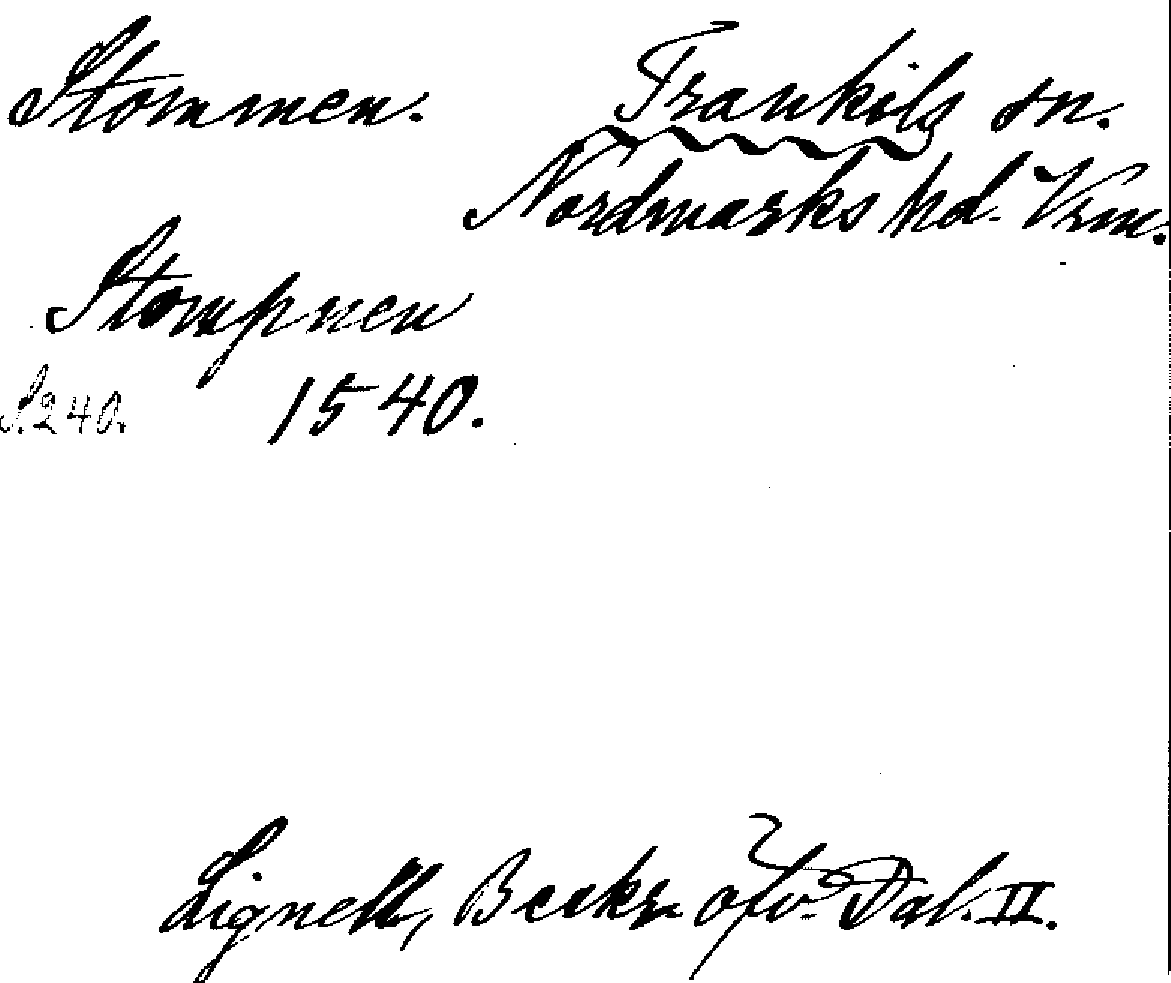 Stommen. Trankils sn.
Nordmarks hd. Vrm.
Stompnen
S. 240. 1540.
Lignell, Beskr. öfv. Dal. II.